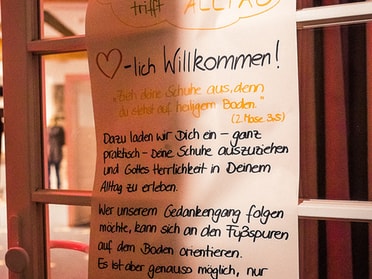 trifft ALLTAG
♡-lich Willkommen!
"Zieh deine Schuhe aus, denn
du stehst auf heiligem Boden."
(2. Mose 3,5)
Dazu laden wir Dich ein – ganz
praktisch – Deine Schuhe auszuziehen
und Gottes Herrlichkeit in Deinem
Alltag zu erleben.
Wer unserem Gedankengang folgen
möchte, kann sich an den Fußspuren
auf dem Boden orientieren.
Es ist aber genauso möglich, nur